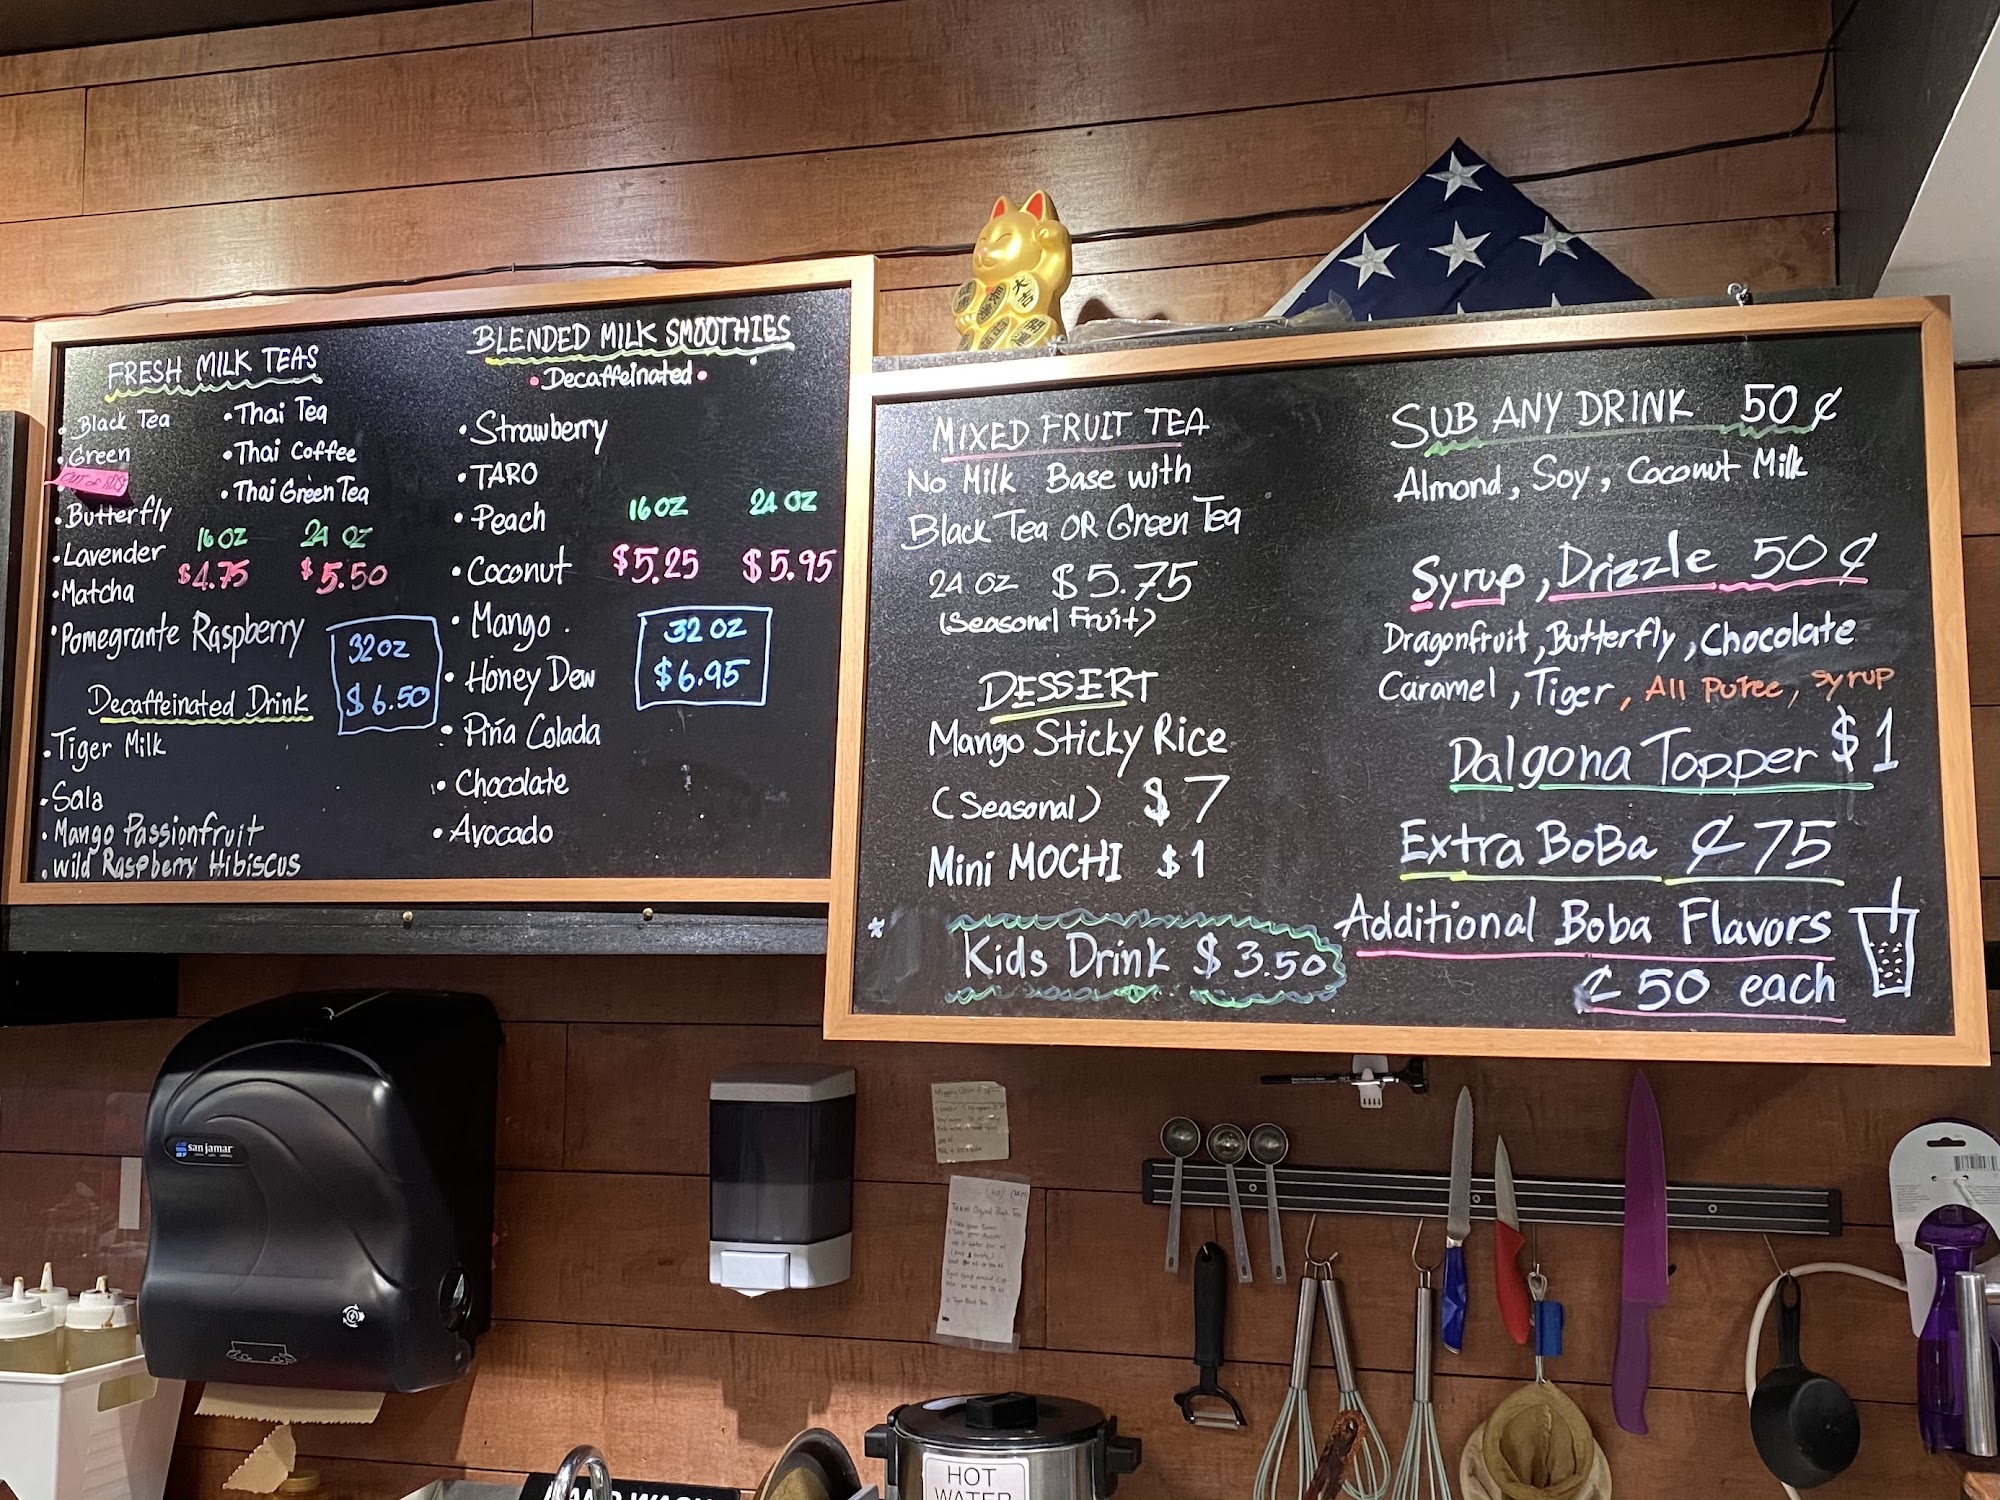 FRESH MILK TEAS
• Black Tea
• Green
OUT OF
• Butterfly
• Lavender
• Matcha
• Pomegrante Raspberry
• Thai Tea
• Thai Coffee
• Thai Green Tea
16 OZ 24 OZ
$4.75 $5.50
32 OZ
$6.50
Decaffeinated Drink
• Tiger Milk
• Sala
• Mango Passionfruit
• Wild Raspberry Hibiscus
BLENDED MILK SMOOTHIES
• Decaffeinated •
• Strawberry
• TARO
• Peach
• Coconut
• Mango
• Honey Dew
• Piña Colada
• Chocolate
• Avocado
16 OZ 24 OZ
$5.25 $5.95
32 OZ
$6.95
MIXED FRUIT TEA
No Milk Base with
Black Tea OR Green Tea
24 OZ $5.75
(Seasonal Fruit)
DESSERT
Mango Sticky Rice
(Seasonal) $7
Mini MOCHI $1
* Kids Drink $3.50
SUB ANY DRINK 50¢
Almond, Soy, Coconut Milk
Syrup, Drizzle 50¢
Dragonfruit, Butterfly, Chocolate
Caramel, Tiger, All Puree, Syrup
Dalgona Topper $1
Extra BoBa ¢75
Additional Boba Flavors
¢50 each
大吉
san jamar
HOT
WATER